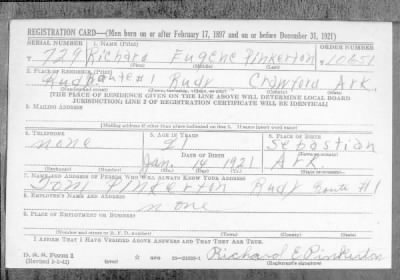 REGISTRATION CARD—(Men born on or after February 17, 1897 and on or before December 31, 1921)
SERIAL NUMBER 1. NAME (Print) ORDER NUMBER
729 Richard Eugene Pinkerton 10651
(First) (Middle) (Last)
2. PLACE OF RESIDENCE (Print)
Route 1 Rudy Crawford Ark.
[THE PLACE OF RESIDENCE GIVEN ON THE LINE ABOVE WILL DETERMINE LOCAL BOARD
JURISDICTION; LINE 2 OF REGISTRATION CERTIFICATE WILL BE IDENTICAL]
3. MAILING ADDRESS
[Mailing address if other than place indicated on line 2. If same insert word same]
4. TELEPHONE 5. AGE IN YEARS 6. PLACE OF BIRTH
none 21 Sebastian
DATE OF BIRTH (Town or county)
Jan. 14 1921 Ark.
(Exchange) (Number) (Mo.) (Day) (Yr.) (State or country)
7. NAME AND ADDRESS OF PERSON WHO WILL ALWAYS KNOW YOUR ADDRESS
Tom Pinkerton Rudy Route #1
8. EMPLOYER'S NAME AND ADDRESS
none
9. PLACE OF EMPLOYMENT OR BUSINESS
(Number and street or R. F. D. number) (Town) (County) (State)
I AFFIRM THAT I HAVE VERIFIED ABOVE ANSWERS AND THAT THEY ARE TRUE.
D. S. S. Form 1
(Revised 1-1-42) Richard E. Pinkerton
(Registrant's signature)